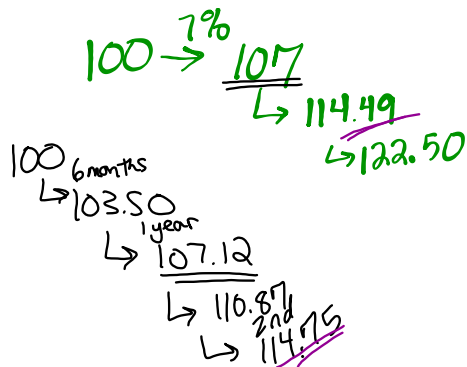 7%
100 → 107
114.49
122.50
100
6 months
103.50
1 year
107.12
110.87
2nd
114.75